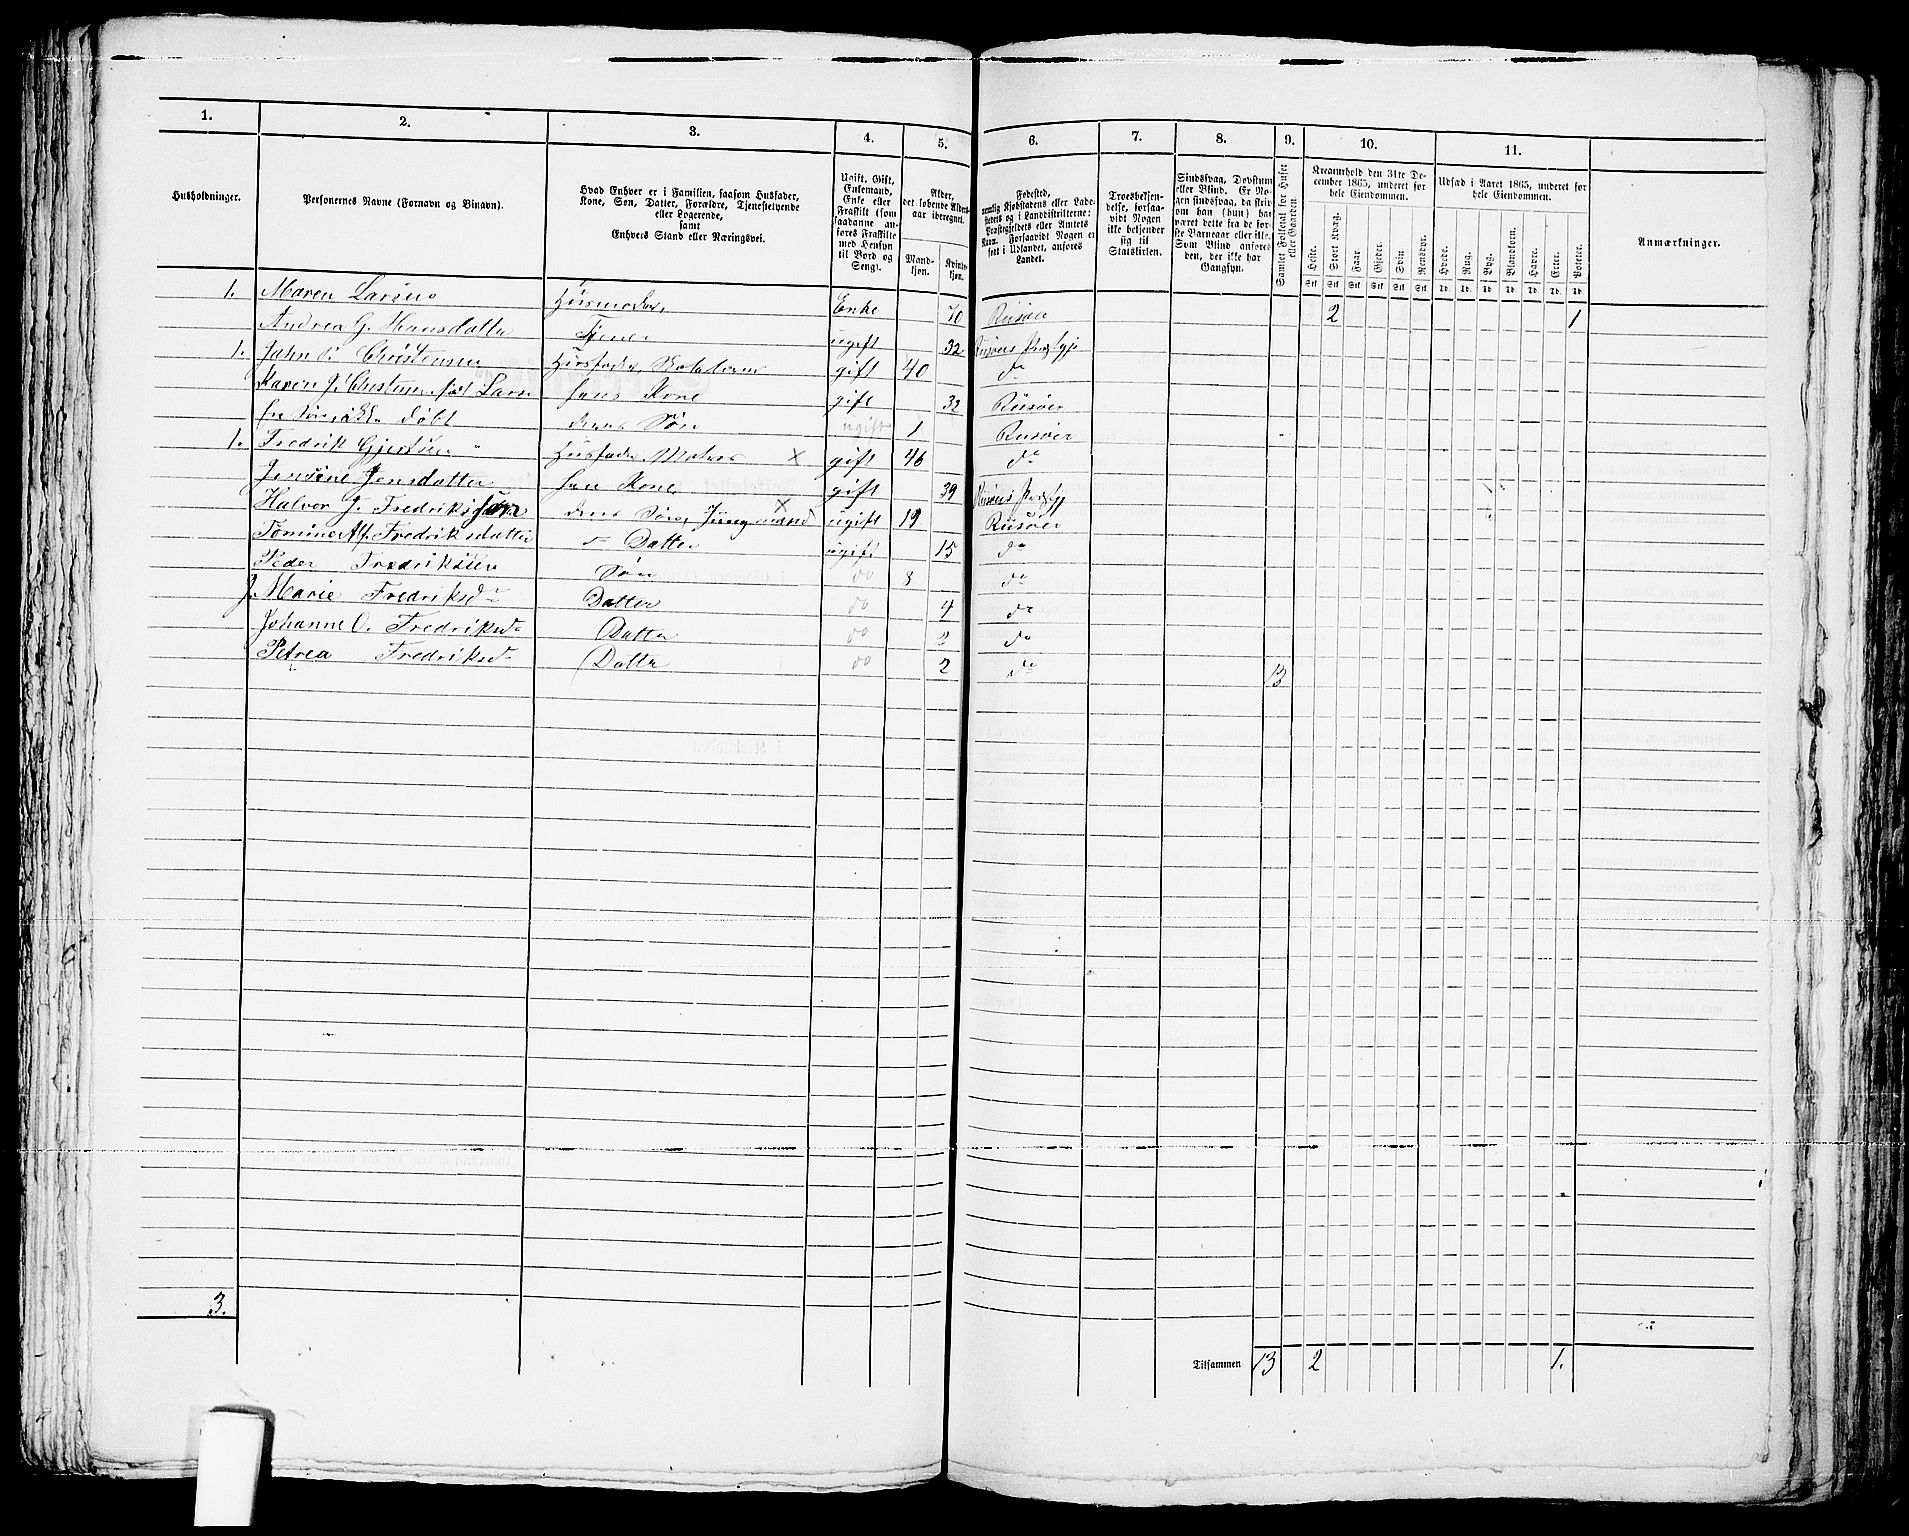 1. 2. 3. 4. 5. 6. 7. 8. 9. 10. 11.
Husholdninger.
Personernes Navne (Fornavn og Binavn).
Hvad Enhver er i Familien, saasom Husfader,
Kone, Søn, Datter, Forældre, Tjenestetyende
eller Logerende,
samt
Enhvers Stand eller Næringsvei.
Ugift, Gift,
Enkemand,
Enke eller
Fraskilt (som
saadanne an-
føres Fraskilte
med Hensyn
til Bord og
Seng).
Alder,
det løbende Alders-
aar iberegnet.
Mand-
kjøn.
Kvinde-
kjøn.
Fødested,
nemlig Kjøbstadens eller Lade-
stedets og i Landdistrikterne:
Præstegjeldets eller Amtets
Navn. Forsaavidt Nogen er
født i Udlandet, anføres
Landet.
Troesbekjen-
delse, forsaa-
vidt Nogen
ikke bekjender
sig til
Statskirken.
Sindssvag, Døvstum
eller Blind. Er No-
gen sindssvag, da skriv
om han (hun) har
været dette fra de før-
ste Barneaar eller ikke.
Som Blind anføres
den, der ikke har
Gangsyn.
Samlet Folketal for Huset
eller Gaarden.
Kreaturhold den 31te De-
cember 1865, underet for
hele Eiendommen.
Heste. Stort Kvæg. Faar. Gjeder. Svin. Rensdyr.
Stk Stk Stk Stk Stk Stk
Udsæd i Aaret 1865, underet for
hele Eiendommen.
Hvede. Rug. Byg. Blandkorn. Havre. Erter. Poteter.
Td. Td. Td. Td. Td. Td. Td.
Anmærkninger.
1. Maren Larsen Husmoder, Enke 70 Riisøer 2 1
Andrea G. Hansdatter Tjener ugift 32 Riisøers Præstgj
1. John P. Christensen Husfader gift 40 do
Karen J. Christensen født Larsen hans Kone gift 32 Riisøer
ikke døbt deres Søn ugift 1 Riisøer
1. Fredrik Gjertsen Husfader, Matros X gift 46 do
Jensine Jensdatter hans Kone, gift 39 Riisøers Præstgj
Halvor J. Fredriksen deres Søn, Jungmand X ugift 19 Riisøer
Tomine Fredriksdatter Datter ugift 15 do
Peder Fredriksen Søn do 8 do
J. Marie Fredriksd Datter do 4 do
Johanne O. Fredriksd Datter do 2 do
Petrea Fredriksd Datter do 2 do 13
3.
Tilsammen 13 2 1.